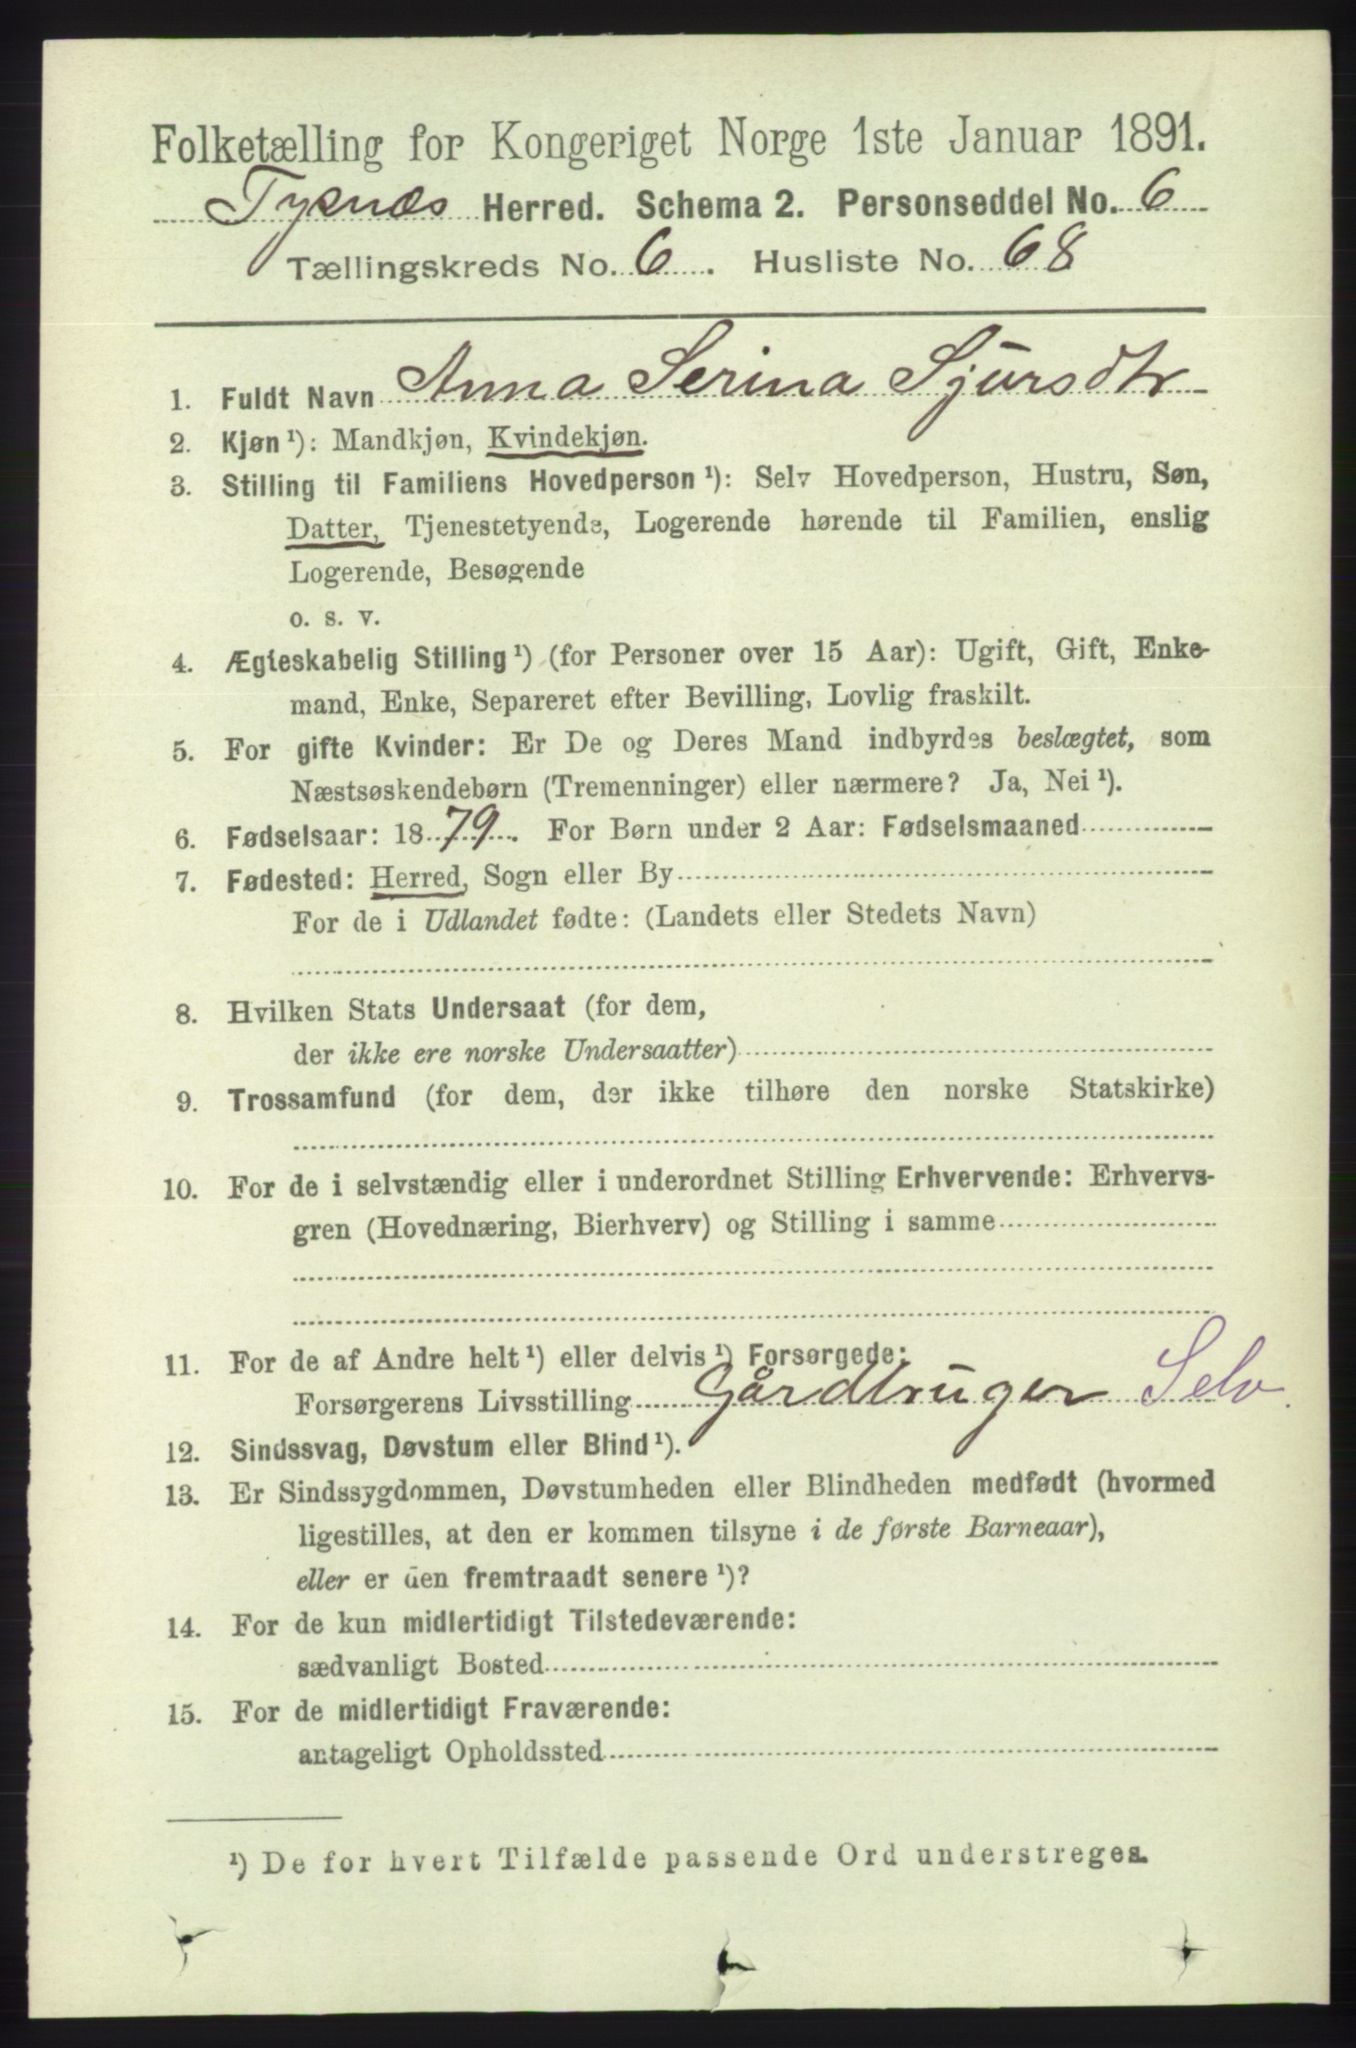 Folketælling for Kongeriget Norge 1ste Januar 1891.
Tysnæs Herred. Schema 2. Personseddel No. 6
Tællingskreds No. 6. Husliste No. 68
1. Fuldt Navn Anna Serina Sjursdtr
2. Kjøn ¹): Mandkjøn, Kvindekjøn.
3. Stilling til Familiens Hovedperson ¹): Selv Hovedperson, Hustru, Søn,
Datter, Tjenestetyende, Logerende hørende til Familien, enslig
Logerende, Besøgende
o. s. v.
4. Ægteskabelig Stilling ¹) (for Personer over 15 Aar): Ugift, Gift, Enke-
mand, Enke, Separeret efter Bevilling, Lovlig fraskilt.
5. For gifte Kvinder: Er De og Deres Mand indbyrdes beslægtet, som
Næstsøskendebørn (Tremenninger) eller nærmere? Ja, Nei ¹).
6. Fødselsaar: 1879. For Børn under 2 Aar: Fødselsmaaned
7. Fødested: Herred, Sogn eller By
For de i Udlandet fødte: (Landets eller Stedets Navn)
8. Hvilken Stats Undersaat (for dem,
der ikke ere norske Undersaatter)
9. Trossamfund (for dem, der ikke tilhøre den norske Statskirke)
10. For de i selvstændig eller i underordnet Stilling Erhvervende: Erhvervs-
gren (Hovednæring, Bierhverv) og Stilling i samme
11. For de af Andre helt ¹) eller delvis ¹) Forsørgede:
Forsørgerens Livsstilling Gårdbruger Selv.
12. Sindssvag, Døvstum eller Blind ¹).
13. Er Sindssygdommen, Døvstumheden eller Blindheden medfødt (hvormed
ligestilles, at den er kommen tilsyne i de første Barneaar),
eller er den fremtraadt senere ¹)?
14. For de kun midlertidigt Tilstedeværende:
sædvanligt Bosted
15. For de midlertidigt Fraværende:
antageligt Opholdssted
¹) De for hvert Tilfælde passende Ord understreges.